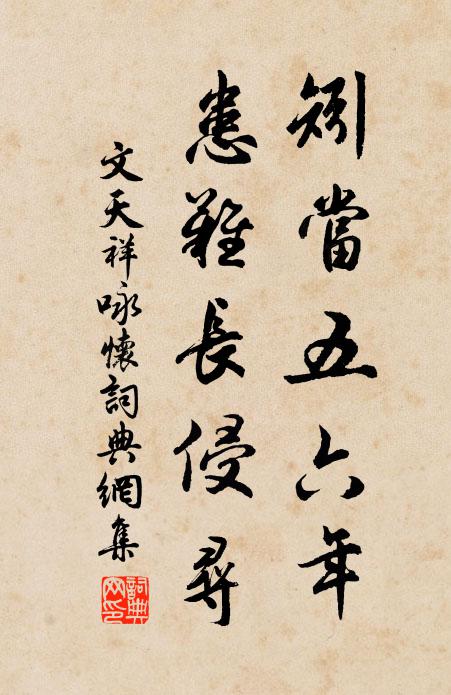 矧當五六年
患難長侵尋
文天祥咏懷詞典網集
詞典
网印